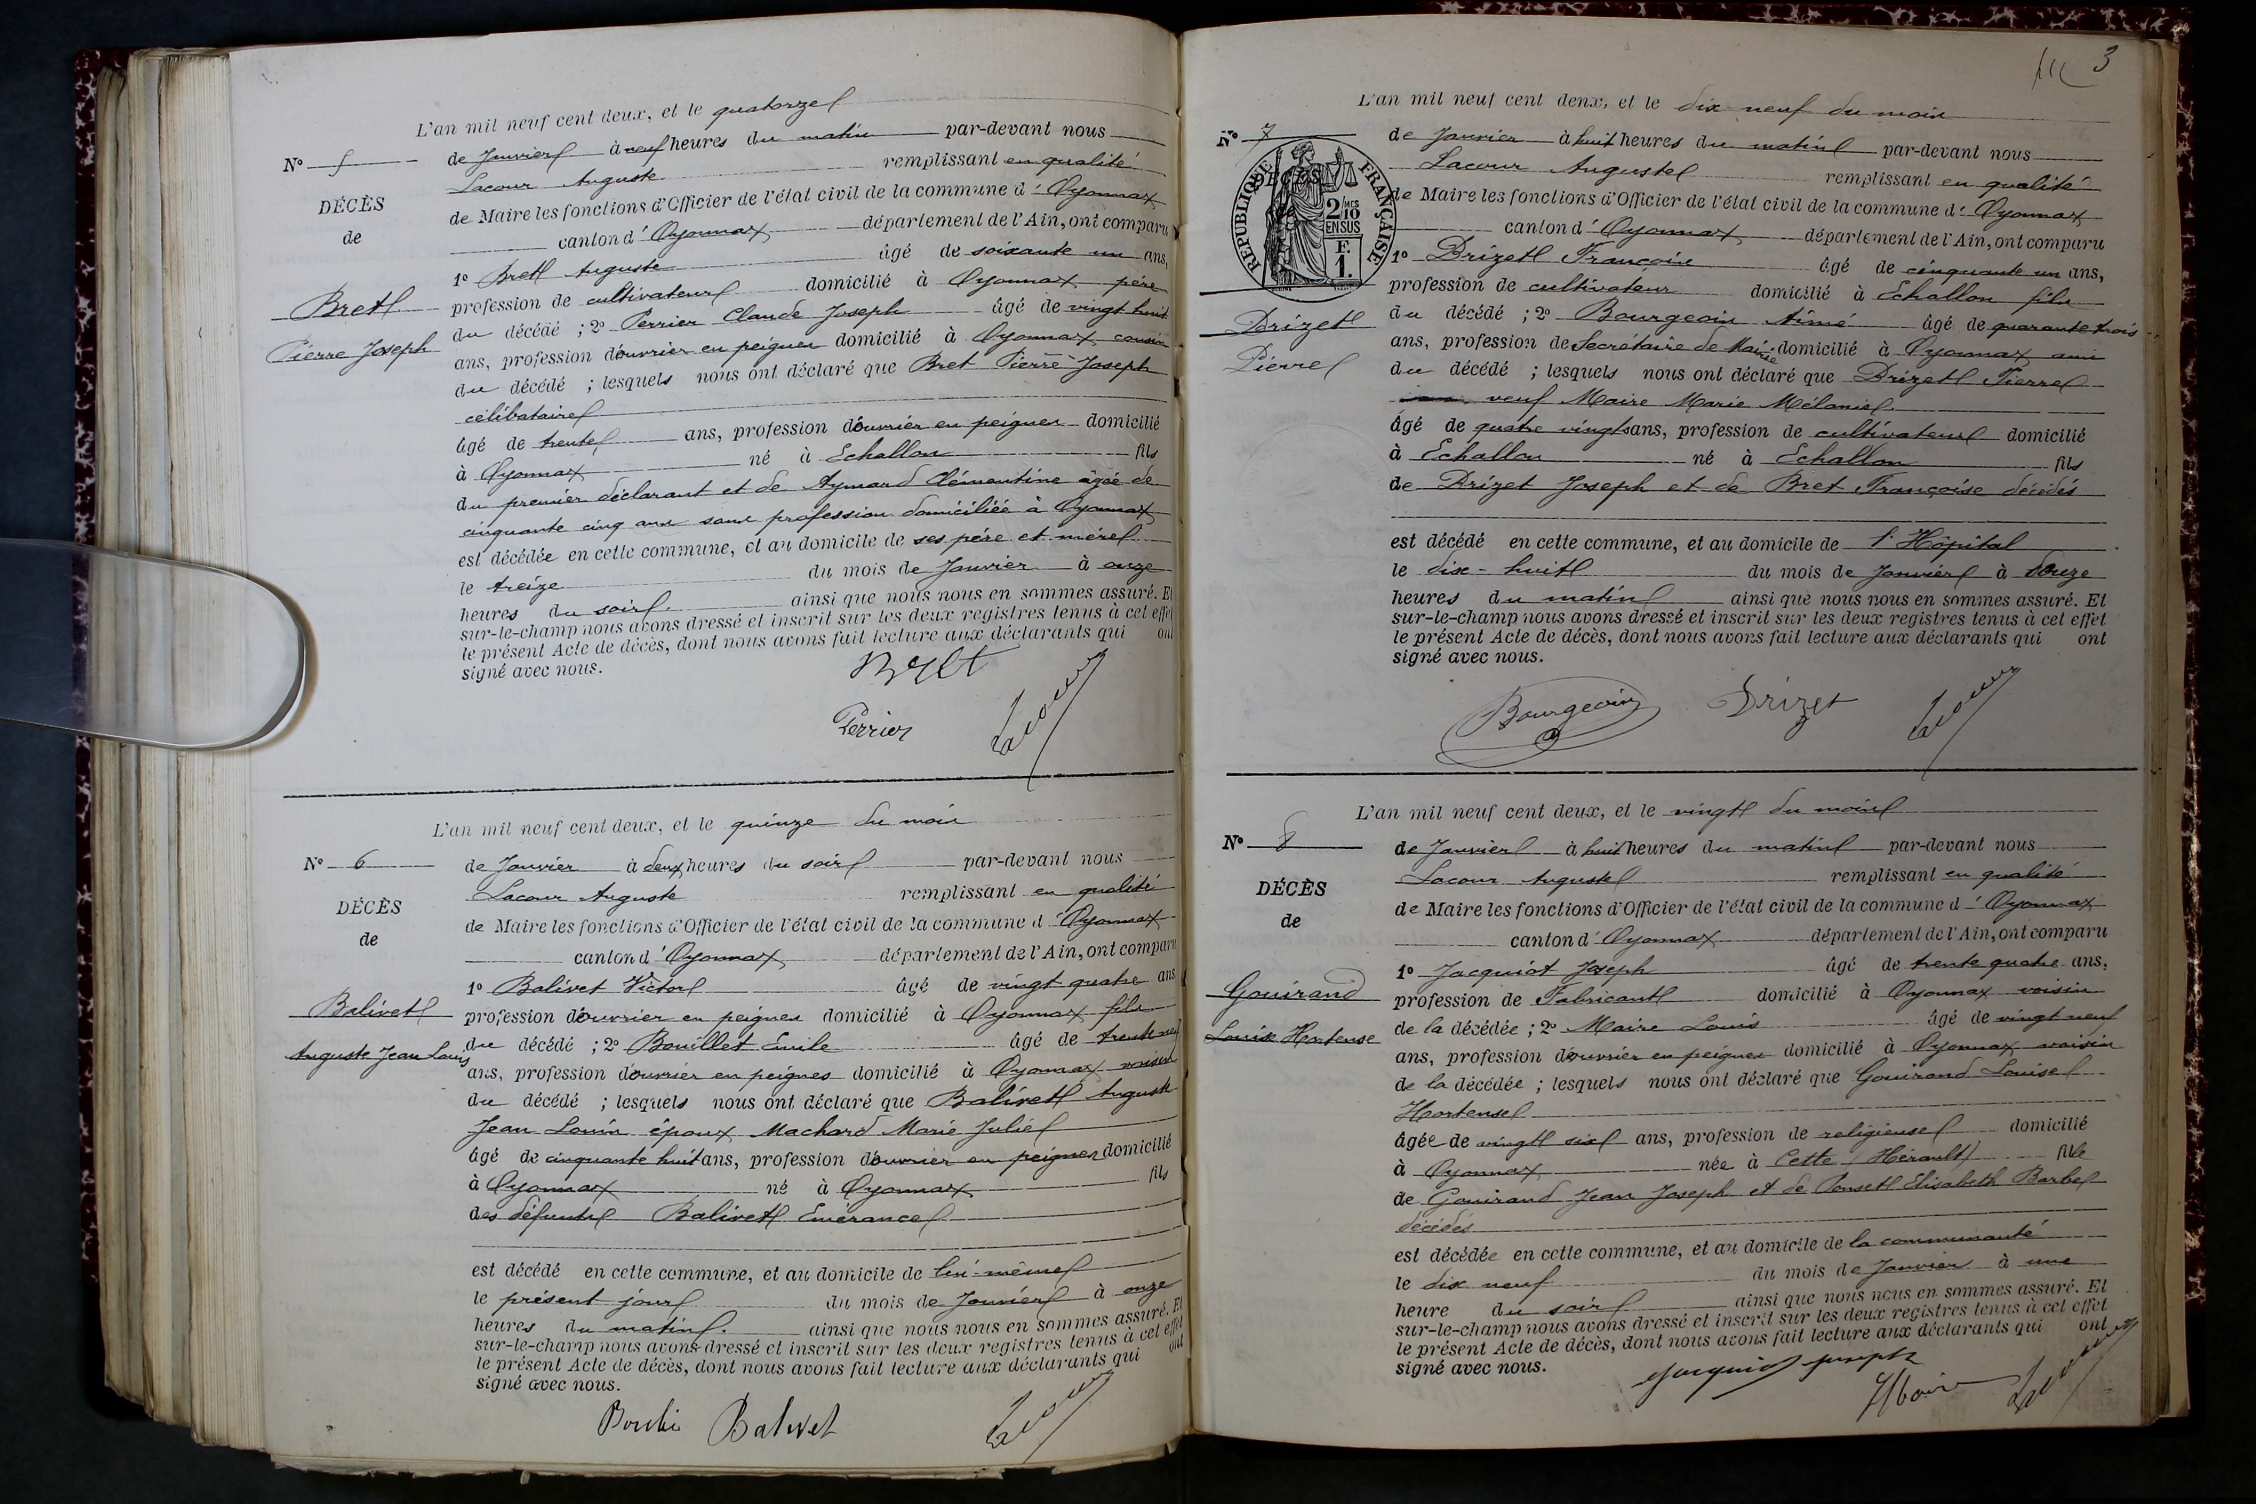 L'an mil neuf cent deux, et le quatorze
N° 5
de Janvier à neuf heures du matin par-devant nous
Lacour Auguste remplissant en qualité
DÉCÈS
de Maire les fonctions d'Officier de l'état civil de la commune d'Oyonnax
de
canton d'Oyonnax département de l'Ain, ont comparu
1° Bret Auguste âgé de soixante un ans,
Bret
profession de cultivateur domicilié à Oyonnax père
du décédé ; 2° Perrier Claude Joseph âgé de vingt huit
Pierre Joseph
ans, profession d'ouvrier en peignes domicilié à Oyonnax cousin
du décédé ; lesquels nous ont déclaré que Bret Pierre Joseph
célibataire
âgé de trente ans, profession d'ouvrier en peignes domicilié
à Oyonnax né à Echallon fils
du premier déclarant et de Aymard Clémentine âgée de
cinquante cinq ans sans profession domiciliée à Oyonnax
est décédée en cette commune, et au domicile de ses père et mère
le treize du mois de Janvier à onze
heures du soir. ainsi que nous nous en sommes assuré. Et
sur-le-champ nous avons dressé et inscrit sur les deux registres tenus à cet effet
le présent Acte de décès, dont nous avons fait lecture aux déclarants qui ont
signé avec nous.
Bret
Perrier
Lacour
L'an mil neuf cent deux, et le quinze du mois
N° 6
de Janvier à deux heures du soir par-devant nous
Lacour Auguste remplissant en qualité
DÉCÈS
de Maire les fonctions d'Officier de l'état civil de la commune d'Oyonnax
de
canton d'Oyonnax département de l'Ain, ont comparu
1° Balivet Victor âgé de vingt quatre ans
Balivet
profession d'ouvrier en peignes domicilié à Oyonnax fils
du décédé ; 2° Bouillet Emile âgé de trente neuf
Auguste Jean Louis
ans, profession d'ouvrier en peignes domicilié à Oyonnax voisin
du décédé ; lesquels nous ont déclaré que Balivet Auguste
Jean Louis époux Machard Marie Julie
âgé de cinquante huit ans, profession d'ouvrier en peignes domicilié
à Oyonnax né à Oyonnax fils
des défunts Balivet Emérance
est décédé en cette commune, et au domicile de lui-même
le présent jour du mois de Janvier à onze
heures du matin. ainsi que nous nous en sommes assuré. Et
sur-le-champ nous avons dressé et inscrit sur les deux registres tenus à cet effet
le présent Acte de décès, dont nous avons fait lecture aux déclarants qui ont
signé avec nous.
Balivet
Lacour
3
L'an mil neuf cent deux, et le dix neuf du mois
N° 7
de Janvier à huit heures du matin par-devant nous
Lacour Auguste remplissant en qualité
DÉCÈS
RÉPUBLIQUE FRANÇAISE
2/10 MES
EN SUS
F.
1.
de Maire les fonctions d'Officier de l'état civil de la commune d'Oyonnax
canton d'Oyonnax département de l'Ain, ont comparu
1° Drizet François âgé de cinquante un ans,
profession de cultivateur domicilié à Echallon fils
Drizet
du décédé ; 2° Bourgeois Aimé âgé de quarante trois
ans, profession de Secrétaire de Mairie domicilié à Oyonnax ami
Pierre
du décédé ; lesquels nous ont déclaré que Drizet Pierre
veuf Maire Marie Mélanie
âgé de quatre vingts ans, profession de cultivateur domicilié
à Echallon né à Echallon fils
de Drizet Joseph et de Bret Françoise décédés
est décédé en cette commune, et au domicile de l'Hôpital
le dix-huit du mois de Janvier à onze
heures du matin ainsi que nous nous en sommes assuré. Et
sur-le-champ nous avons dressé et inscrit sur les deux registres tenus à cet effet
le présent Acte de décès, dont nous avons fait lecture aux déclarants qui ont
signé avec nous.
Bourgeois Drizet Lacour
L'an mil neuf cent deux, et le vingt du mois
N° 8
de Janvier à huit heures du matin par-devant nous
Lacour Auguste remplissant en qualité
DÉCÈS
de Maire les fonctions d'Officier de l'état civil de la commune d'Oyonnax
de
canton d'Oyonnax département de l'Ain, ont comparu
1° Jacquiot Joseph âgé de trente quatre ans,
Gouirand
profession de Fabricant domicilié à Oyonnax voisin
de la décédée ; 2° Maire Louis âgé de vingt neuf
Louise Hortense
ans, profession d'ouvrier en peignes domicilié à Oyonnax voisin
de la décédée ; lesquels nous ont déclaré que Gouirand Louise
Hortense
âgée de vingt six ans, profession de religieuse domicilié
à Oyonnax née à Cette (Hérault) fille
de Gouirand Jean Joseph et de Ponset Elisabeth Barbe
décédés
est décédée en cette commune, et au domicile de la communauté
le dix neuf du mois de Janvier à une
heure du soir ainsi que nous nous en sommes assuré. Et
sur-le-champ nous avons dressé et inscrit sur les deux registres tenus à cet effet
le présent Acte de décès, dont nous avons fait lecture aux déclarants qui ont
signé avec nous.
Jacquiot Joseph
Maire Lacour